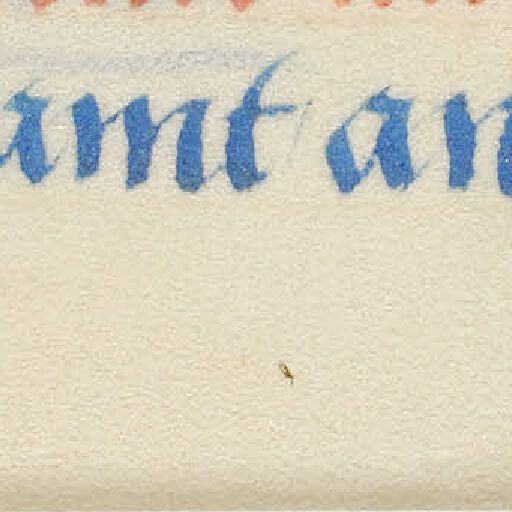 amt an